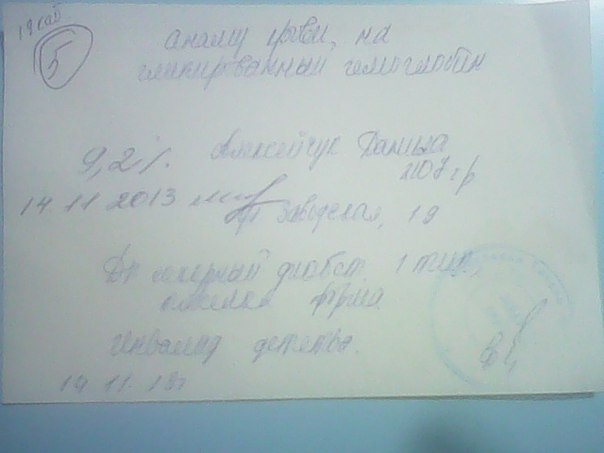 19 каб
5
анализ крови, на
гликированный гемоглобин
9,2 %. Алексейчук Данила
2007 гр
14 11 2013
Заводская, 19
Ds сахарный диабет 1 тип,
форма
инвалид детства.
14 11. 13г